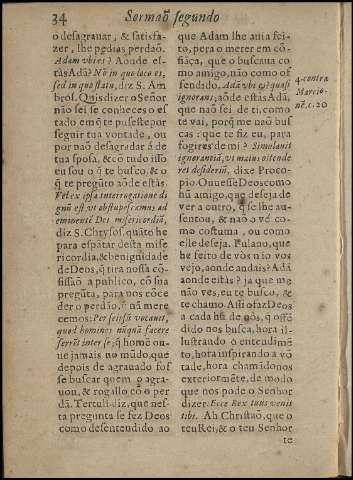 34
Sermaõ segundo
o desagravar, & satisfa-
zer, lhe pedias perdaõ.
Adam vbi es? Aonde es-
tàs Adã? Nõ in quo loco es,
sed in quo statu, diz S. Am
bros. Quis dizer o Señor
não sei se conheces o es
tado em q̃ te puseste por
seguir tua vontade, ou
por naõ desagradar á de
tua sposa, & cõ tudo isso
eu sou o q̃ te busco, & o
q̃ te pregũto aõde estàs.
Vel ex ipsa interrogatione di
gnũ est, vt obstupescamus ad
eminentẽ Dei misericordiã,
diz S. Chrysos. quãto he
para espãtar desta mise
ricordia, & benignidade
de Deos, q̃ tira nossa cõ-
fissaõ a publico, cõ sua
pregũta, para nos cõce
der o perdão, q̃ nã mere
cemos: Per seipsũ vocauit,
quod homines nũquã facere
serrõt inter se; q̃ homẽ ou-
ue jamais no mũdo, que
depois de agrauado fos
se buscar quem o agra-
uou, & rogallo cõ o per
dã. Tertul. diz, que nes-
ta pregunta se fez Deos
como desentendido ao
que Adam lhe auia fei-
to, pera o merer em cõ-
fiãça, que o buscaua co
mo amigo, não como of
fendido. Adã vbi es, quasi
ignorans; aõde estàs Adã,
que naõ sei de ti, como
te vai, porq̃ me naõ bus
cas: que te fiz eu, para
fogires de mi? Simolauit
ignorantiã, vt maius ostende
ret desideriũ, dixe Proco-
pio. Ouuesse Deos como
hũ amigo, que deseja de
ver a outro, q̃ se lhe au-
sentou, & naõ o vé co-
mo costuma, ou como
elle deseja. Fulano, que
he feito de vòs não vos
vejo, aonde andais? Adã
aonde estàs? ja que me
não ves, eu te busco, &
te chamo. Assi o faz Deos
a cada hũ de nòs, q̃ o offẽ
dido nos busca, hora il-
lustrando o entendimẽ
to, hora inspirando a võ
tade, hora chamãdo nos
exteriormẽte, de modo
que nos pode o Senhor
dizer. Ecce Rex tuus venit
tibi. Ah Christaõ, que o
teu Rei, & o teu Senhor
te
4. contra
Marcio-
nẽ. c. 20